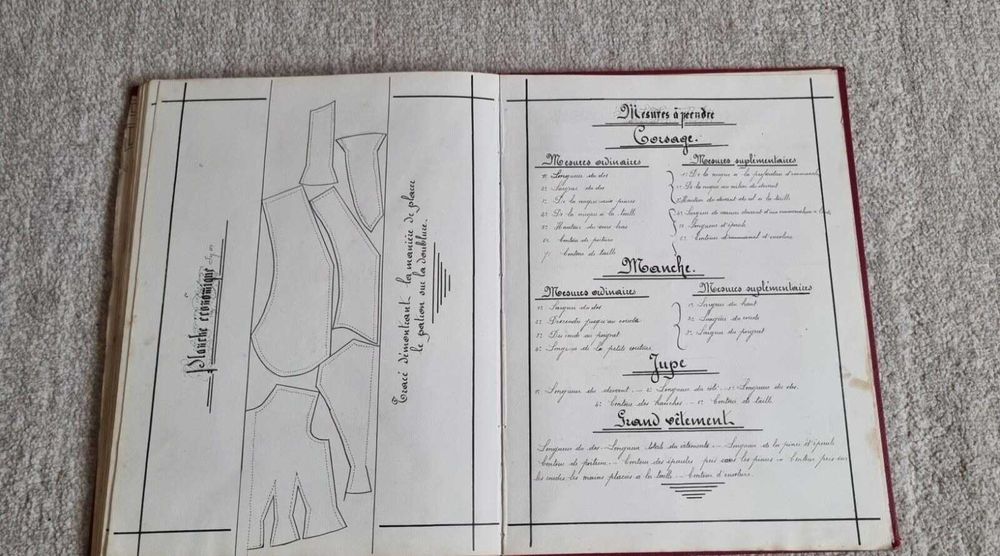 Planche économique
Tracé démontrant la manière de placer
le patron sur la doublure.
Mesures à prendre
Corsage.
Mesures ordinaires
1º Longueur du dos
2º Largeur du dos
3º De la nuque aux pinces
4º De la nuque à la taille
5º Hauteur du sous bras
6º Contour de poitrine
7º Contour de taille
Mesures suplémentaires
1º De la nuque à la profondeur d'emmanchure
2º De la nuque au milieu du devant
3º Hauteur du devant du col à la taille
4º Largeur de devant d'une emmanchure à l'autre
5º Longueur d'épaule
6º Contour d'emmanchure d'encolure
Manche.
Mesures ordinaires
1º Largeur du dos
2º Descendre jusqu'au coude
3º Du coude au poignet
4º Longueur de la petite couture
Mesures suplémentaires
1º Largeur du haut
2º Largeur du coude
3º Largeur du poignet
Jupe
1º Longueur du devant. — 2º Longueur du côté. — 3º Longueur du dos.
4º Contour des hanches. — 5º Contour de taille.
Grand vêtement
Longueur du dos. Longueur totale du vêtement. — Longueur de la pince et épaule
Contour de poitrine. — Contour des épaules pris sous les pinces. — Contour pris sur
les coudes les mains placées à la taille. — Contour d'encolure.